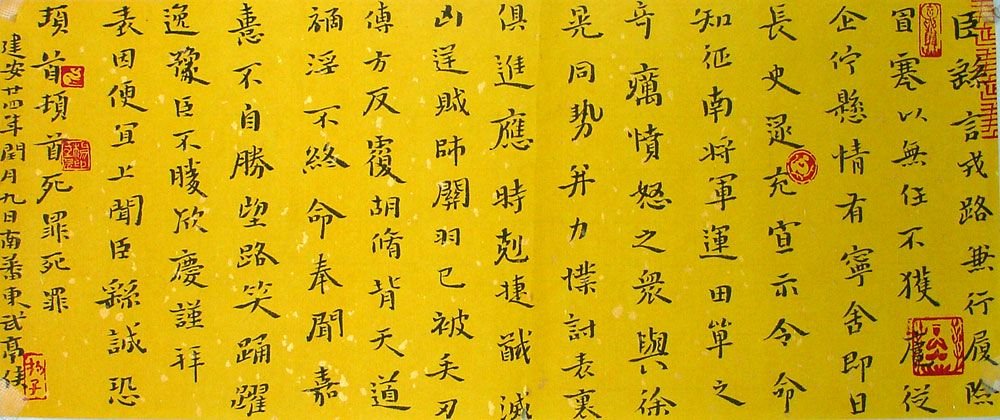 臣繇言戎路兼行履險
冒寒以無任不獲扈從
企佇懸情有寧舍即日
長史逯充宣示令命
知征南將軍運田單之
奇癘憤怒之衆與徐
晃同勢并力撲討表裏
俱進應時剋捷馘滅
凶逆賊師關羽已被矢刃
傅方反覆胡脩背天道
禍淫不終命奉聞嘉
憙不自勝望路笑踊躍
逸豫臣不勝欣慶謹拜
表因便宜上聞臣繇誠恐
頓首頓首死罪死罪
建安廿四年閏月九日南蕃東武亭侯